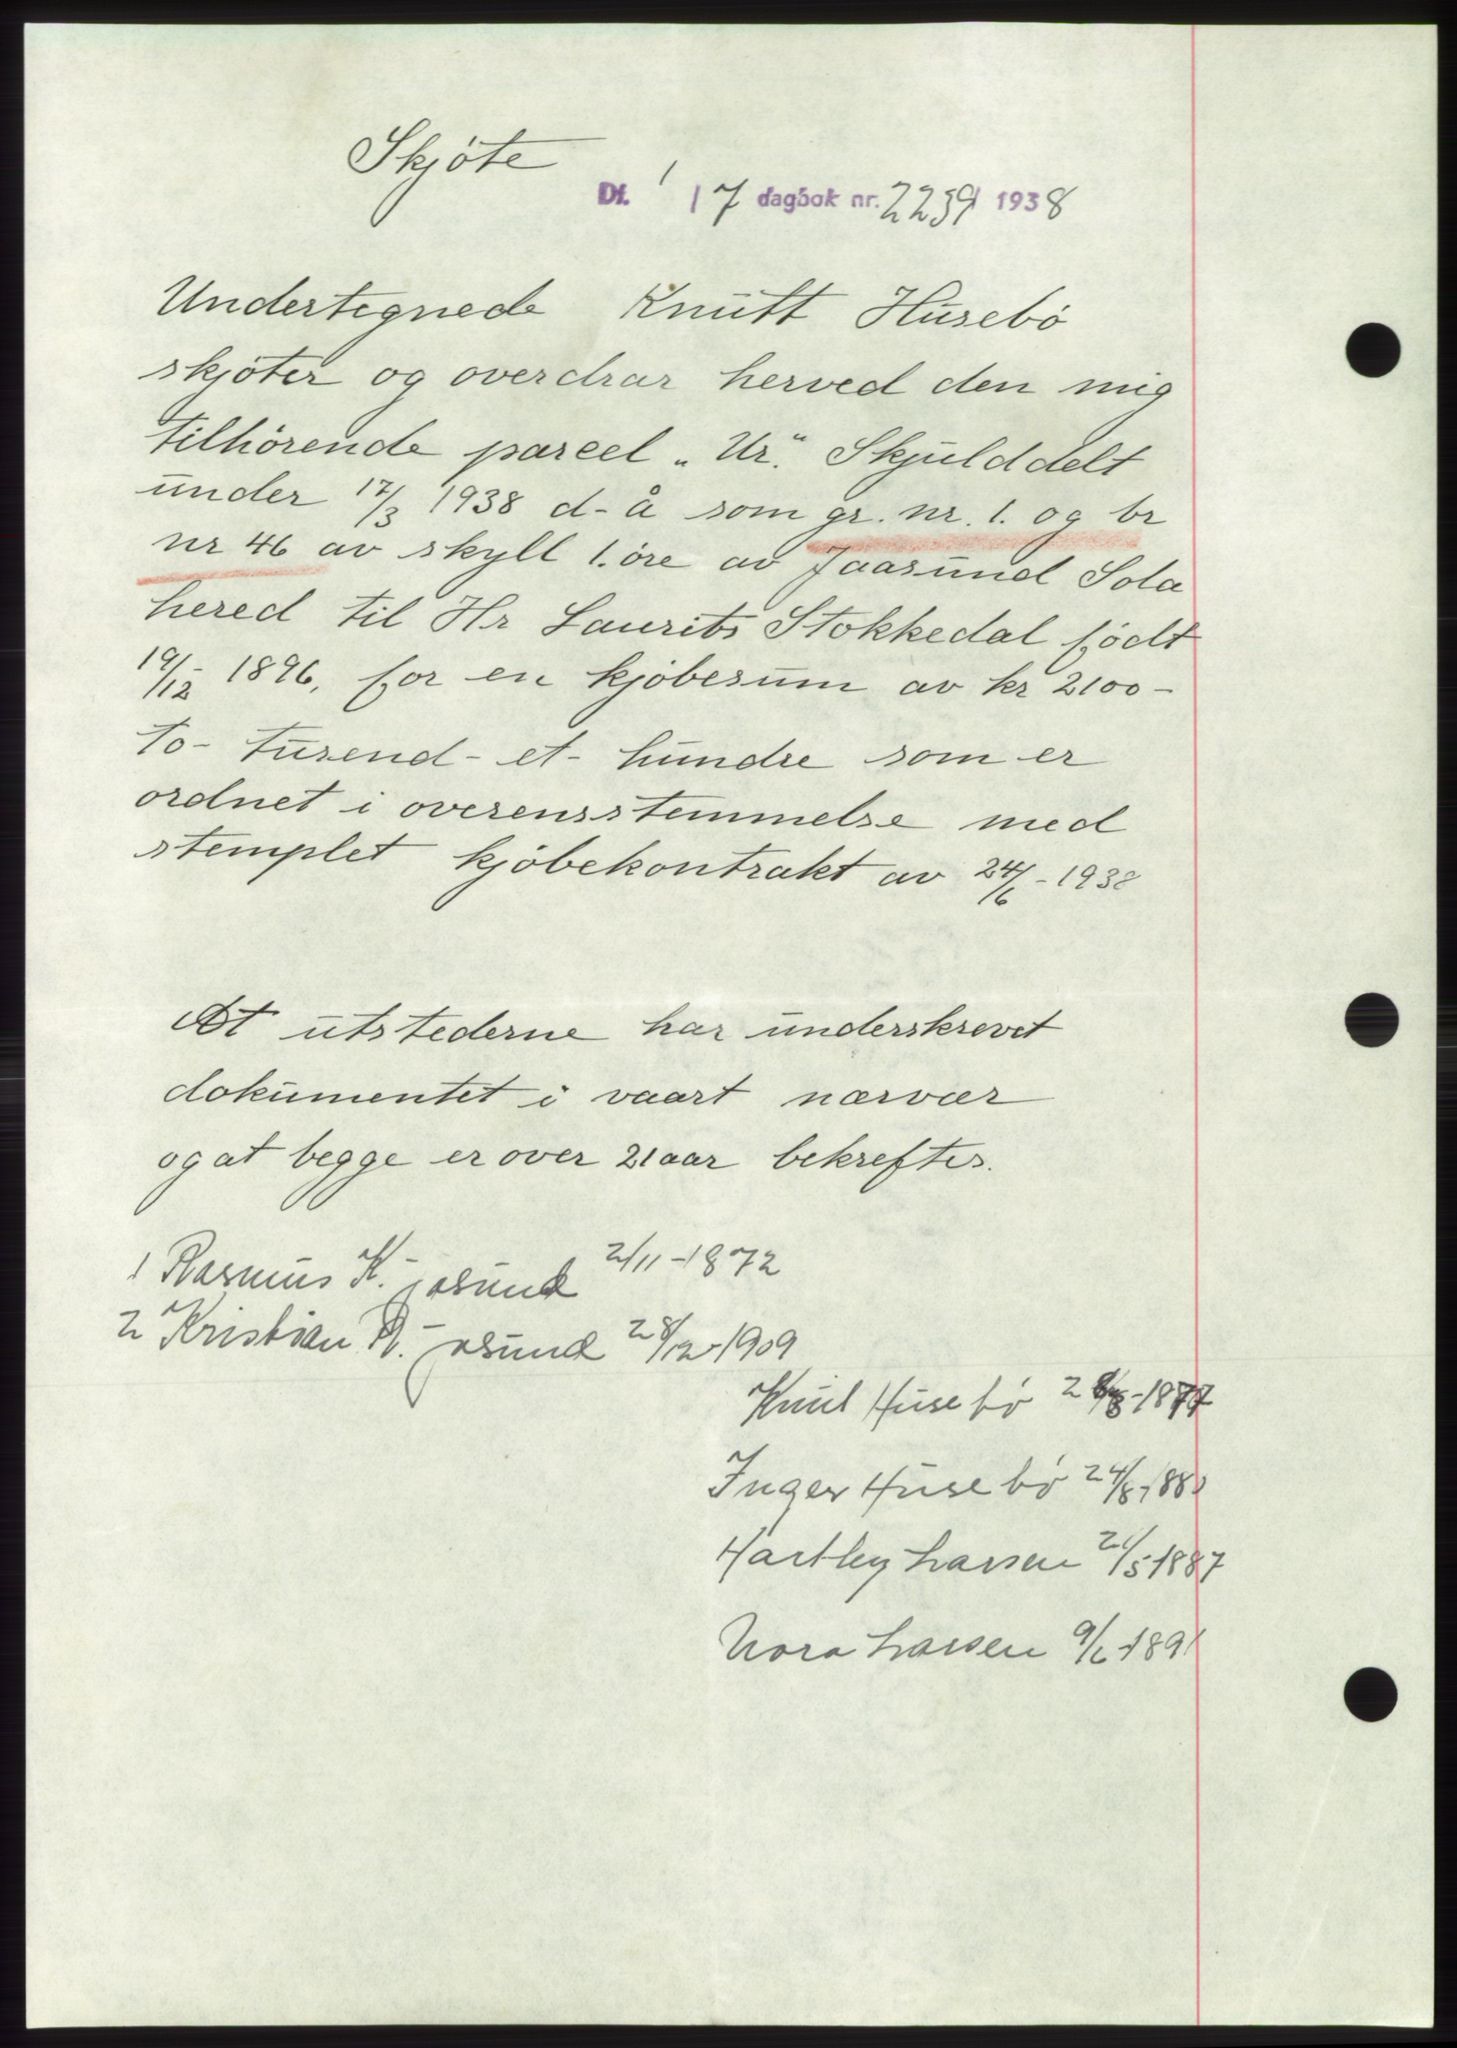 Skjöte
Df. 1/7 dagbok nr. 2239 1938
Undertegnede Knutt Husebö
skjöter og overdrar herved den mig
tilhörende parcel „Ur." Skjulddelt
under 17/3 1938 d-å som gr. nr. 1. og br
nr 46 av skyll 1. öre av Jaasund Sola
hered til Hr Laurits Stokkedal födt
19/12- 1896, for en kjöbesum av kr 2100-
to- tusend- et- hundre som er
ordnet i overensstemmelse med
stemplet kjöbekontrakt av 24/6-1938
At utstederne har underskrevet
dokumentet i vaart nærvær
og at begge er over 21 aar bekreftes.
1 Rasmus K. Jåsund 2/11-1872
2 Kristian R. Jåsund 28/12-1909
Knut Husebö
Inger Husebö 24/8-188
Hartley Larsen 21/5-1887
Nora Larsen 9/6-1891